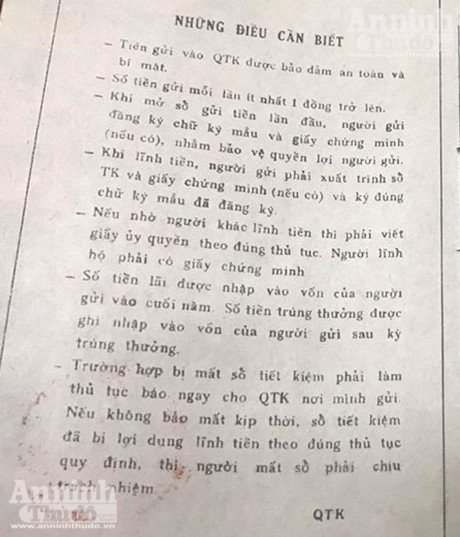 An ninh
Thủ đô
NHỮNG ĐIỀU CẦN BIẾT
– Tiền gửi vào QTK được bảo đảm an toàn và
bí mật.
– Số tiền gửi mỗi lần ít nhất 1 đồng trở lên.
– Khi mở sổ gửi tiền lần đầu, người gửi
đăng ký chữ ký mẫu và giấy chứng minh
(nếu có), nhằm bảo vệ quyền lợi người gửi.
– Khi lĩnh tiền, người gửi phải xuất trình sổ
TK và giấy chứng minh (nếu có) và ký đúng
chữ ký mẫu đã đăng ký.
– Nếu nhờ người khác lĩnh tiền thì phải viết
giấy ủy quyền theo đúng thủ tục. Người lĩnh
hộ phải có giấy chứng minh
– Số tiền lãi được nhập vào vốn của người
gửi vào cuối năm. Số tiền trúng thưởng được
ghi nhập vào vốn của người gửi sau kỳ
trúng thưởng.
– Trường hợp bị mất sổ tiết kiệm phải làm
thủ tục báo ngay cho QTK nơi mình gửi.
Nếu không báo mất kịp thời, sổ tiết kiệm
đã bị lợi dụng lĩnh tiền theo đúng thủ tục
quy định, thì người mất sổ phải chịu
trách nhiệm.
QTK
An ninh
Thủ đô
www.anninhthudo.vn